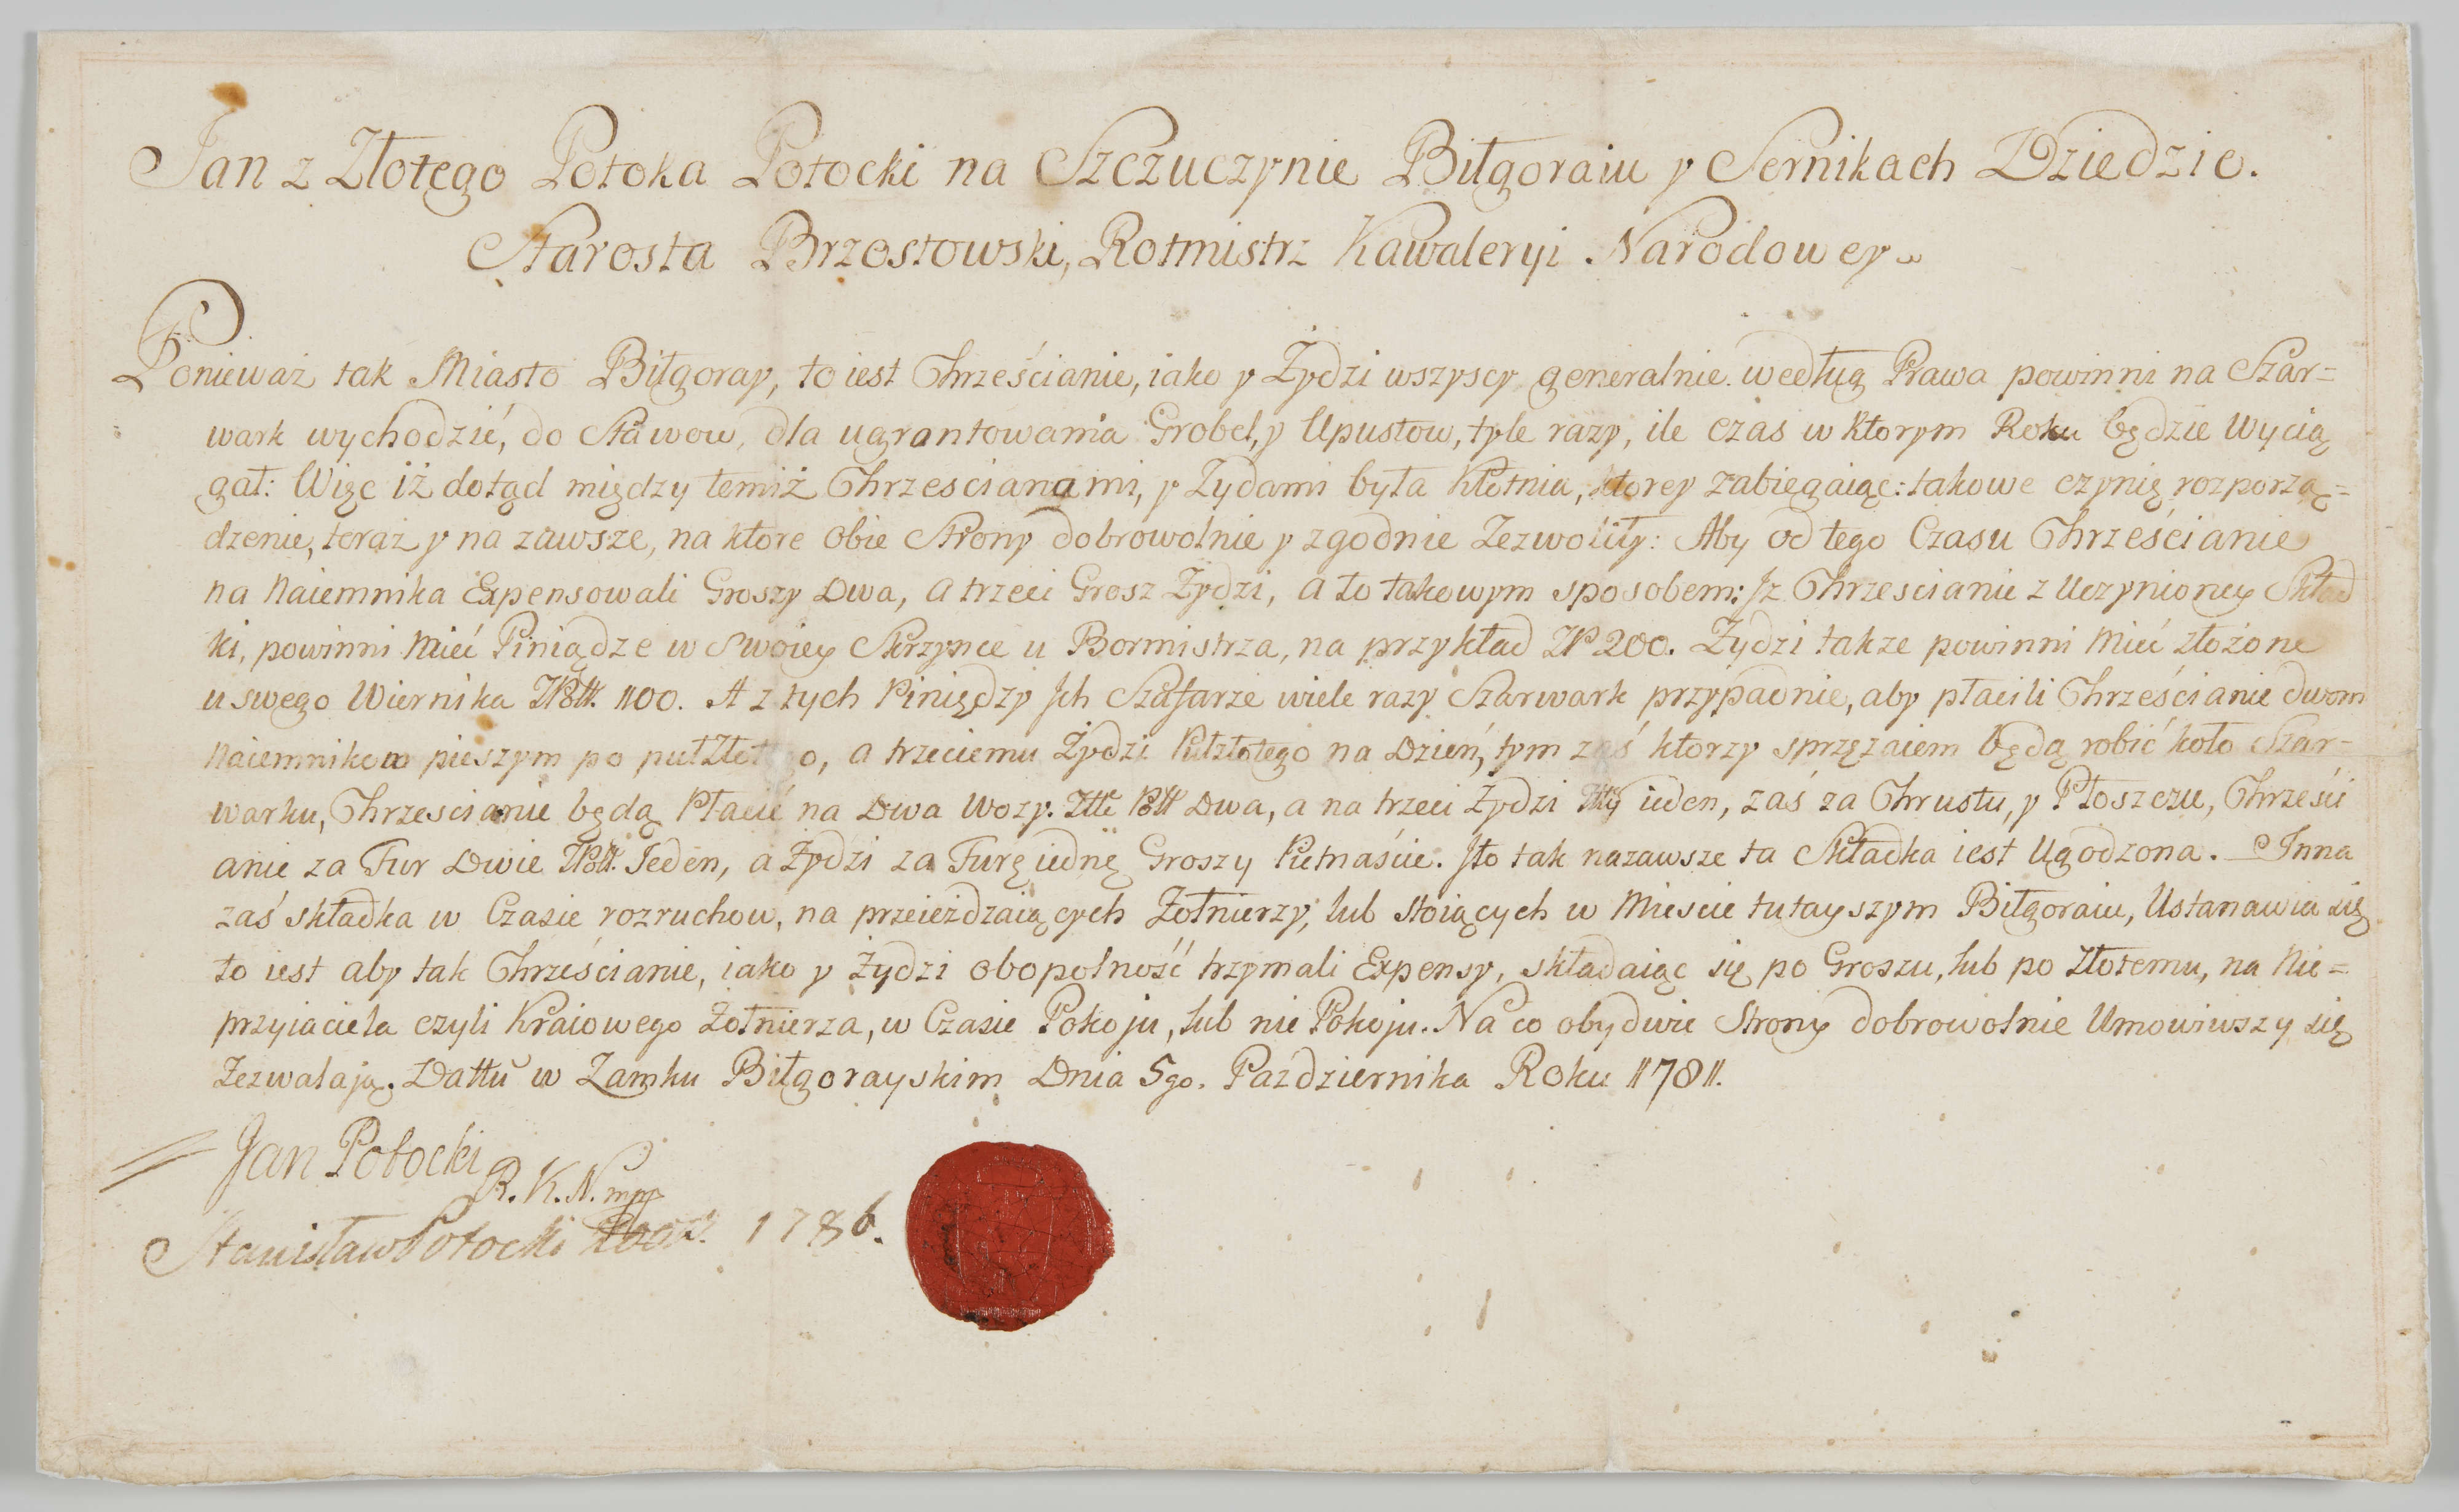 Jan z Złotego Potoka Potocki na Szczuczynie Biłgoraiu y Sernikach Dziedzic.
Starosta Brzostowski, Rotmistrz Kawaleryi Narodowey
Ponieważ tak Miasto Biłgoray, to iest Chrześcianie, iako y Żydzi wszyscy generalnie według Prawa powinni na Szar=
wark wychodzić, do Stawow, dla ugrantowania Grobel, y Upustow, tyle razy, ile czas w ktorym Roku będzie wycią
gał: Więc iż dotąd między temiż Chrzescianami, y Zydami była Kłotnia, ktorey zabiegaiąc: takowe czynię rozporzą=
dzenie, teraz y na zawsze, na ktore obie Strony dobrowolnie y zgodnie Zezwoliły: Aby od tego Czasu Chrześcianie
na Naiemnika Expensowali Groszy Dwa, a trzeci Grosz Żydzi, a to takowym sposobem: Jż Chrzescianie z Uczynioney Skład
ki, powinni Mieć Piniądze w Swoiey Skrzynce u Bormistrza, na przykład ZP 200. Żydzi takze powinni Mieć złożone
u swego Wiernika ZPoll. 100. A z tych Piniędzy Jch Szafarze wiele razy Szarwark przypadnie, aby płacili Chrześcianie dwom
Naiemnikom pieszym po pułZłotego, a trzeciemu Żydzi Pułzłotego na Dzień, tym zaś ktorzy sprzężaiem będą robić koło Szar=
warku, Chrzescianie będą Płacić na Dwa Wozy. Złłt Poll Dwa, a na trzeci Żydzi Złły ieden, zaś za Chrustu, y Płoszczu, Chrześci
anie za Fur Dwie ZPoll. Jeden, a Żydzi za Furę iednę Groszy Pietnaście. Jto tak nazawsze ta Składka iest Ugodzona. Inna
zaś składka w Czasie rozruchow, na przeieżdzaiących Żołnierzy, lub stoiących w Miescie tutayszym Biłgoraiu, Ustanawia się
to iest aby tak Chrześcianie, iako y Żydzi obopolność trzymali Expensy, składaiąc się po Groszu, lub po Złotemu, na Nie=
przyiaciela czyli Kraiowego Żołnierza, w Czasie Pokoju, lub nie Pokoju. Na co obydwie Strony dobrowolnie Umowiwszy się
Zezwalają. Dattũ w Zamku Biłgorayskim Dnia 5go. Października Roku 1781.
Jan Potocki
R. K. N. mpp
Stanisław Potocki 1786.